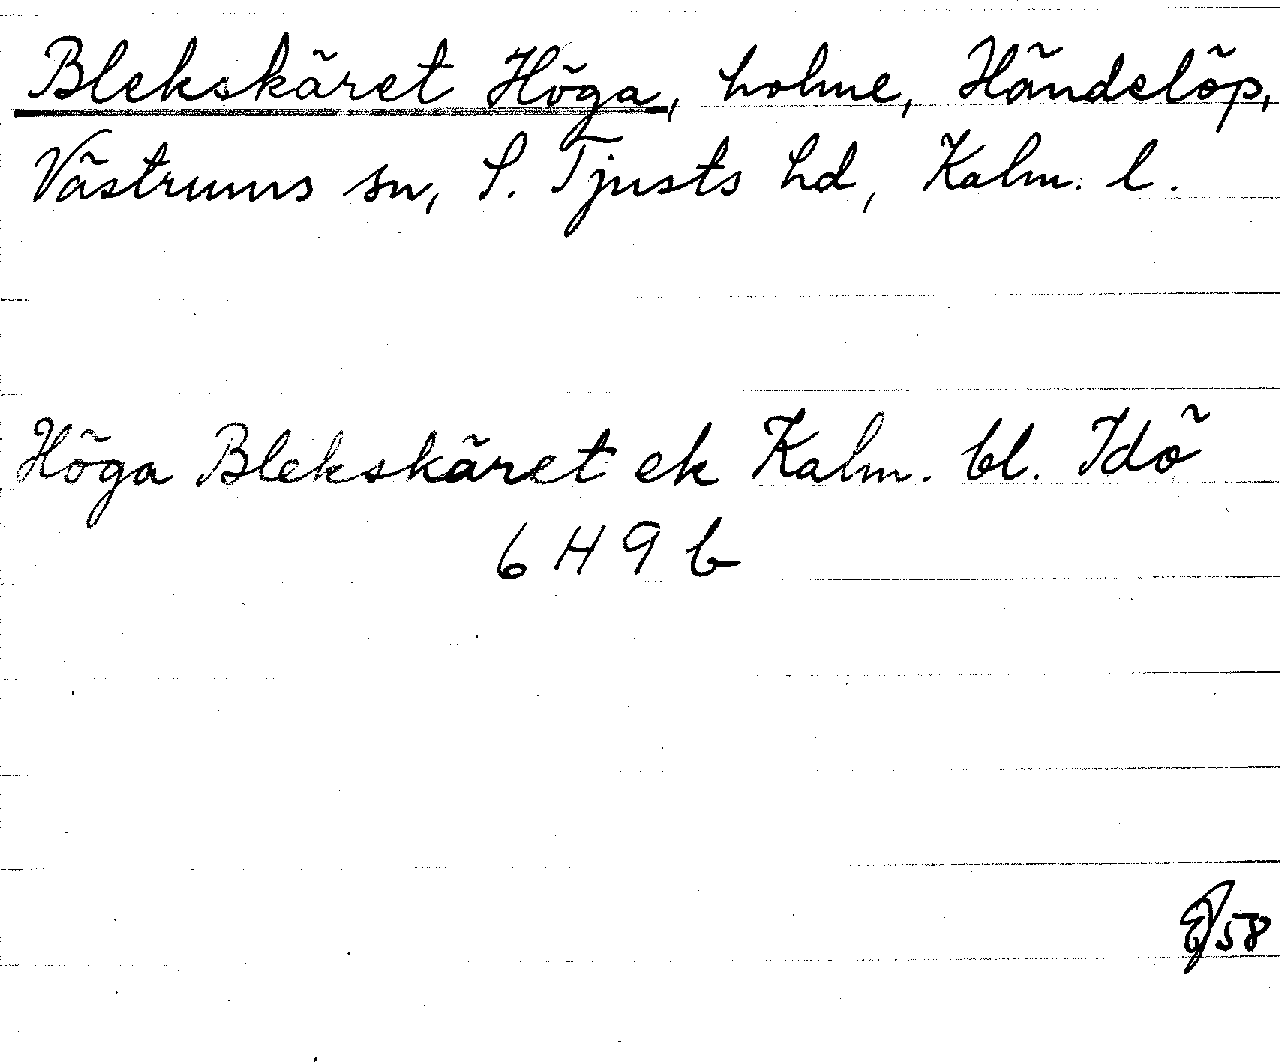 Blekskäret Höga, holme, Händelöp,
Västrums sn, S. Tjusts hd, Kalm. l.
Höga Blekskäret ek Kalm. bl. Idö
6 H 9 b
58